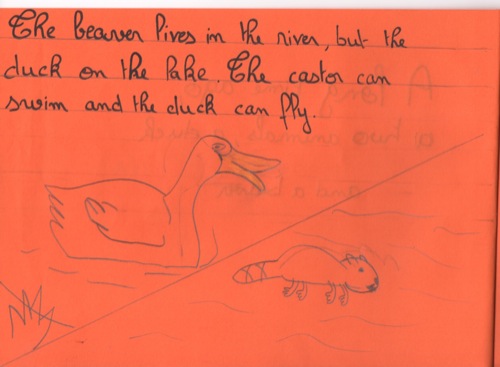 The beaver lives in the river, but the
duck on the lake. The castor can
swim and the duck can fly.